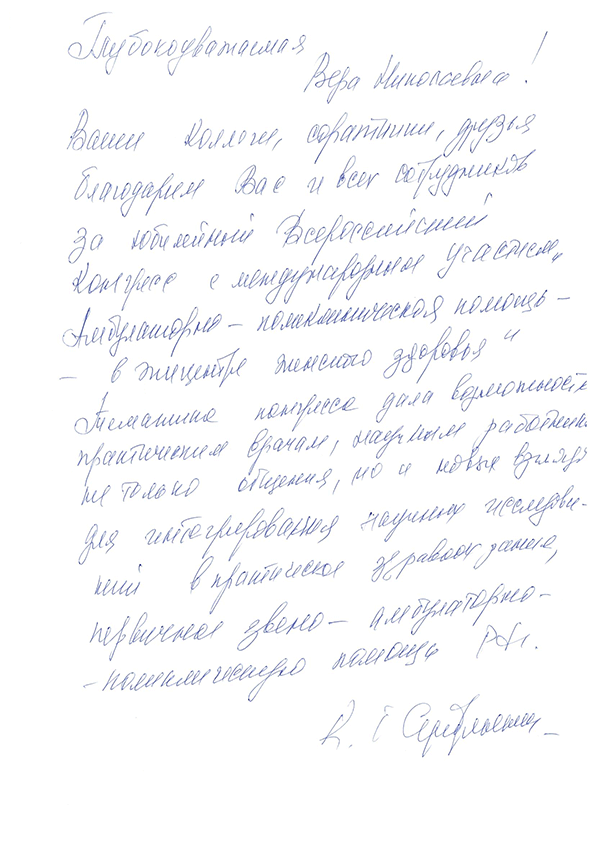 Глубокоуважаемая
Вера Николаевна!
Ваши коллеги, соратники, друзья
благодарим Вас и всех сотрудников
за юбилейный Всероссийский
Конгресс с международным участием „
Амбулаторно – поликлиническая помощь –
– в эпицентре женского здоровья"
Тематика конгресса дала возможность
практическим врачам, научным работника
не только общения, но и новые взгляды
для интегрирования научных исследова-
ний в практическое здравоохранение,
первичное звено – амбулаторно-
-поликлиническую помощь РФ.